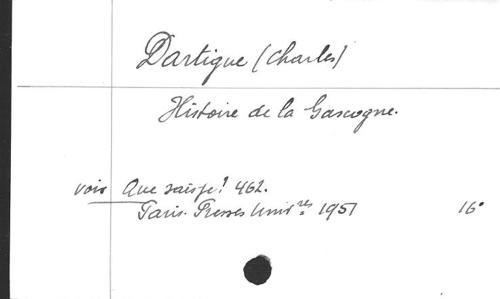 Dartigue (Charles)
Histoire de la Gascogne.
voir Que sais-je? 462.
Paris. Presses Univ.res 1951 16°